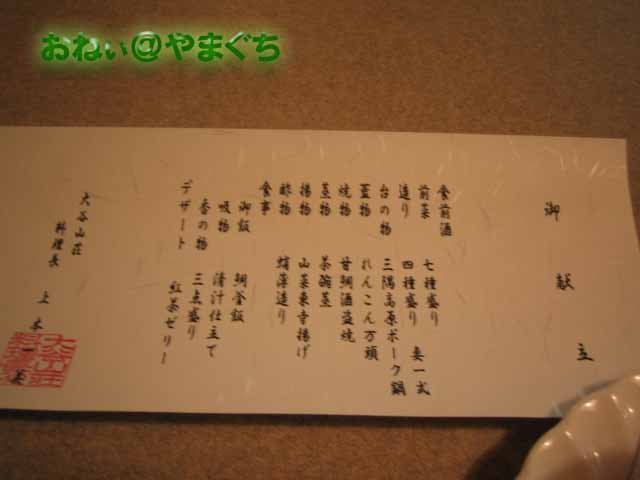 おねぃ@やまぐち
御献立
食前酒
前菜 七種盛り
造り 四種盛り 妻一式
台の物 三隅高原ポーク鍋
蓋物 れんこん万頭
焼物 甘鯛酒盗焼
蒸物 茶碗蒸
揚物 山菜東寺揚げ
酢物 蛸薄造り
食事
御飯 鯛釜飯
吸物 清汁仕立て
香の物 三点盛り
デザート 紅茶ゼリー
大谷山荘
料理長 上本